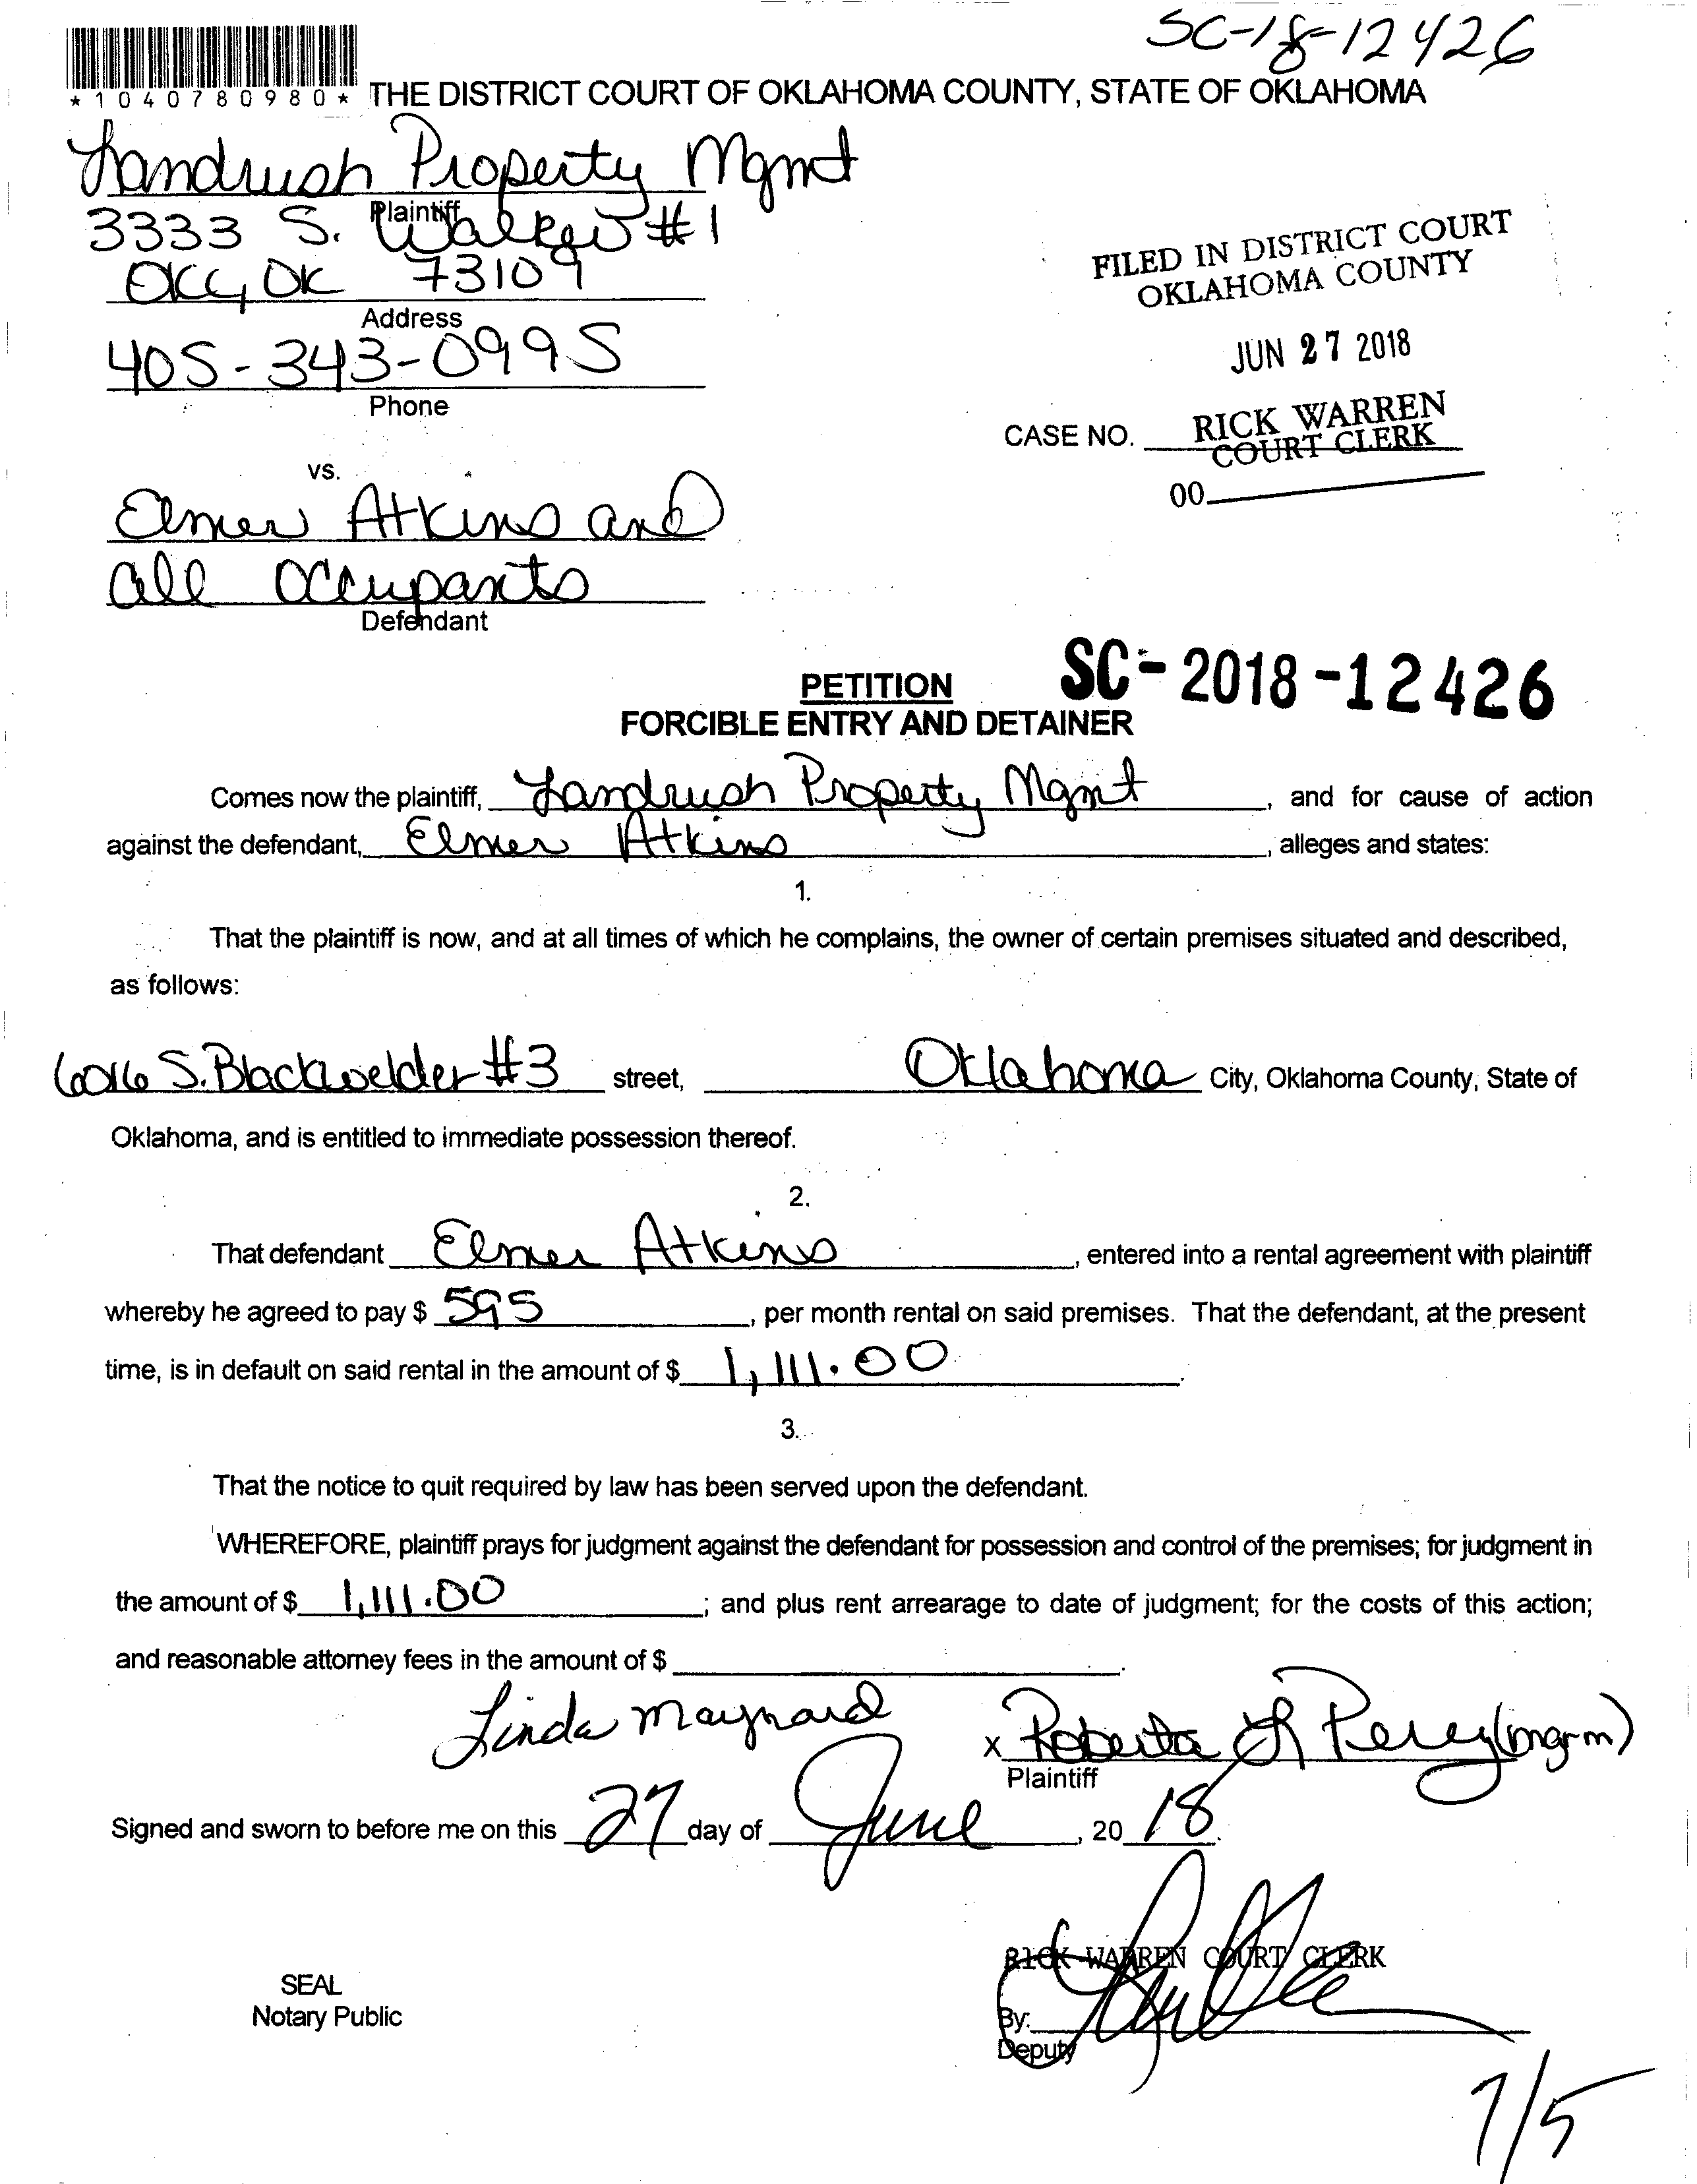 SC-18-12426
*1040780980*
THE DISTRICT COURT OF OKLAHOMA COUNTY, STATE OF OKLAHOMA
Landrush Property Mgmt
Plaintiff
3333 S. Walker #1
OKC, OK 73109
Address
405-343-0995
Phone
FILED IN DISTRICT COURT
OKLAHOMA COUNTY
JUN 27 2018
RICK WARREN
COURT CLERK
CASE NO.
00
vs.
Elmer Atkins and
all occupants
Defendant
SC-2018-12426
PETITION
FORCIBLE ENTRY AND DETAINER
Comes now the plaintiff, Landrush Property Mgmt, and for cause of action
against the defendant, Elmer Atkins, alleges and states:
1.
That the plaintiff is now, and at all times of which he complains, the owner of certain premises situated and described,
as follows:
6016 S. Blackwelder #3 street, Oklahoma City, Oklahoma County, State of
Oklahoma, and is entitled to immediate possession thereof.
2.
That defendant Elmer Atkins, entered into a rental agreement with plaintiff
whereby he agreed to pay $ 595, per month rental on said premises. That the defendant, at the present
time, is in default on said rental in the amount of $ 1,111.00.
3.
That the notice to quit required by law has been served upon the defendant.
WHEREFORE, plaintiff prays for judgment against the defendant for possession and control of the premises; for judgment in
the amount of $ 1,111.00; and plus rent arrearage to date of judgment; for the costs of this action;
and reasonable attorney fees in the amount of $.
Linda Maynard
x Roberta L Percy (mgrm)
Plaintiff
Signed and sworn to before me on this 27 day of June, 20 18.
RICK WARREN COURT CLERK
SEAL
Notary Public
By:
Deputy
7/5